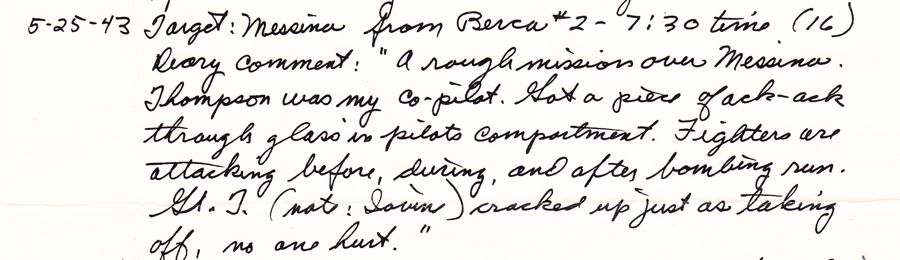 5-25-43 Target: Messina from Berca #2 - 7:30 time (16)
Diary comment: "A rough mission over Messina.
Thompson was my co-pilot. Got a piece of ack-ack
through glass in pilots compartment. Fighters are
attacking before, during, and after bombing run.
Lt. T. (note: Iovine) cracked up just as taking
off, no one hurt."